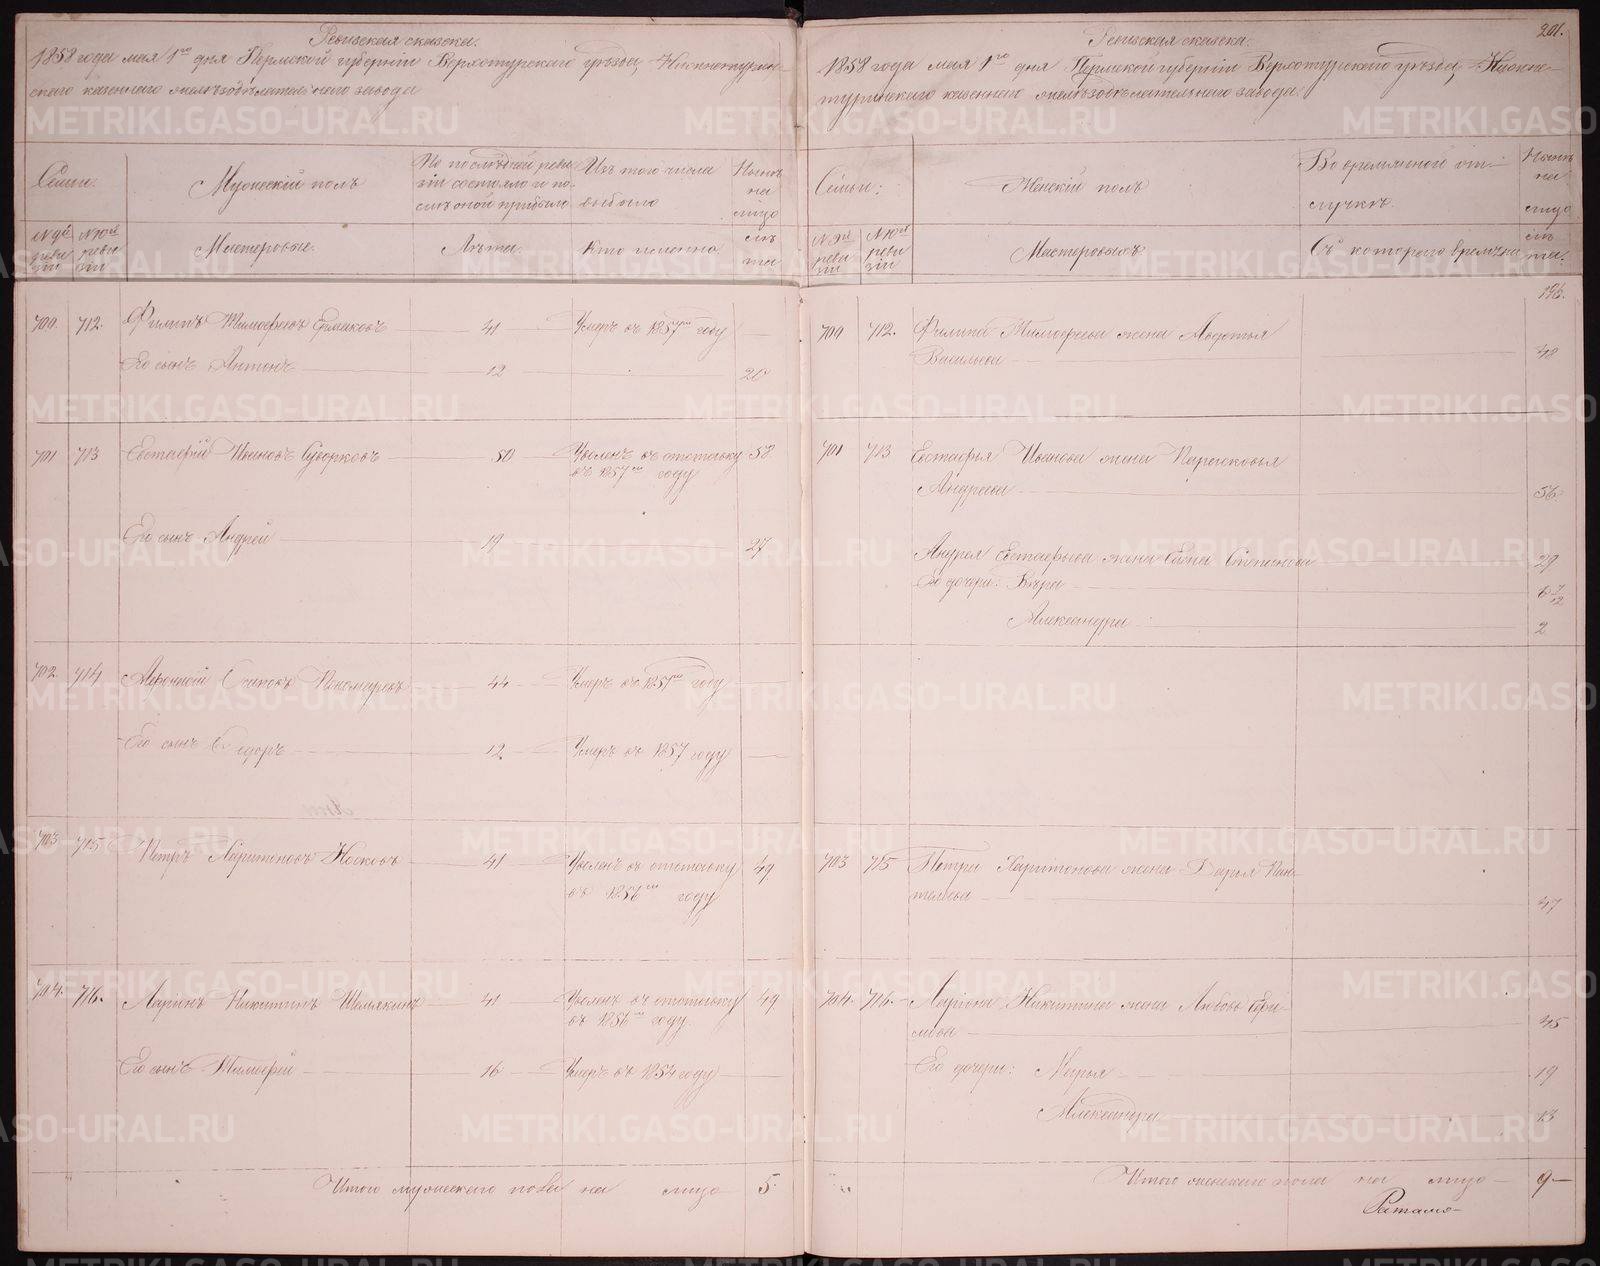 Ревизская сказка.
1858 года мая 1го дня Пермской губернiи Верхотурскаго уѣзда, Нижнетурин-
скаго казеннаго желѣзодѣлательнаго завода
Семьи.
Мужескiй полъ
По послѣдней реви-
зiи состояло и по-
слѣ оной прибыло
Изъ того числа
выбыло
Нынѣ
на
лицо
№ 9й
реви
зiи
№ 10й
реви
зiи
Мастеровые.
Лѣта.
Кто именно.
лѣ
та
700. 712. Филипъ Тимофеевъ Ермаковъ 41 Умеръ въ 1857мъ году
Его сынъ Антонъ 12 20
701 713 Евстафiй Ивановъ Суворковъ 50 Уволенъ въ отставку 58
въ 1857мъ году
Его сынъ Андрей 19 27
702. 714 Афонасiй Осиповъ Пономаревъ 44 Умеръ въ 1857мъ году
Его сынъ Сидоръ 12. Умеръ въ 1857 году
703 715 Петръ Харитоновъ Носковъ 41 Уволенъ въ отставку 49
въ 1856мъ году
704. 716. Ларiонъ Никитинъ Шемякинъ 41 Уволенъ въ отставку 49.
въ 1856мъ году.
Его сынъ Тимофей 16 Умеръ въ 1854 году
Итого мужескаго пола на лицо 5.
201.
Ревизская сказка.
1858 года мая 1го дня Пермской губернiи Верхотурскаго уѣзда, Нижне-
туринскаго казеннаго желѣзодѣлательнаго завода.
Семьи.
Женскiй полъ
Во временной от-
лучкѣ.
Нынѣ
на
лицо
№ 9й
реви
зiи
№ 10й
реви
зiи
Мастеровыхъ
Съ котораго времени
лѣ
та.
196.
700 712. Филипа Тимофеева жена Авдотья
Васильева 48
701 713 Евстафья Иванова жена Парасковья
Андреева 56
Андрея Евстафьева жена Елена Степанова 29
Его дочери: Вѣра 6 7/12
Александра 2
703 715 Петра Харитонова жена Дарья Пан-
телѣева 47
704. 716. Ларiона Никитина жена Любовь Ефи-
мова 45
Его дочери: Марья 19
Александра 13
Итого женскаго пола на лицо 9